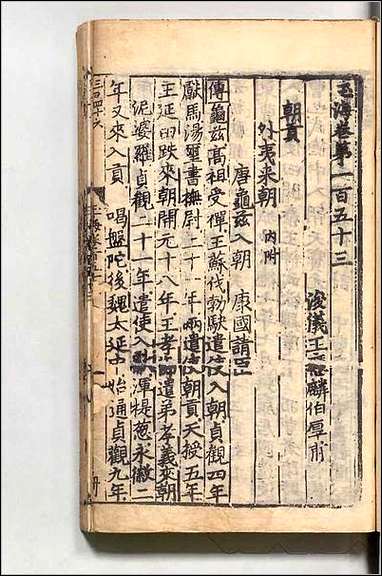 玉海卷第一百五十三
浚儀王應麟伯厚甫
朝貢
外夷來朝 內附
唐龜茲入朝 康國請臣
傳龜茲高祖受禪王蘇伐勃駃遣使入朝貞觀四年
獻馬湯璽書撫尉二十一年兩遣使朝貢天授五年
王延田跌來朝開元十八年王孝節遣弟孝義來朝
泥婆羅貞觀二十一年遣使入獻渾提葱永徽二
年又來入貢 喝盤陀後魏太延中始通貞觀九年